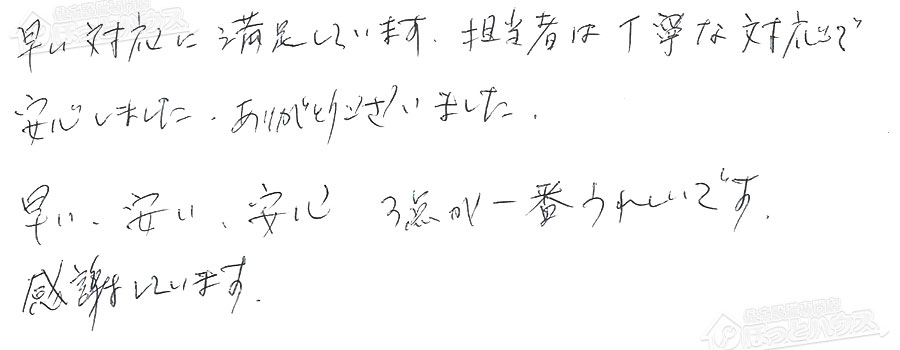 早い対応に満足しています. 担当者は丁寧な対応で
安心しました. ありがとうございました.
早い、安い、安心 3点が一番うれしいです.
感謝しています.
ほっとハウス